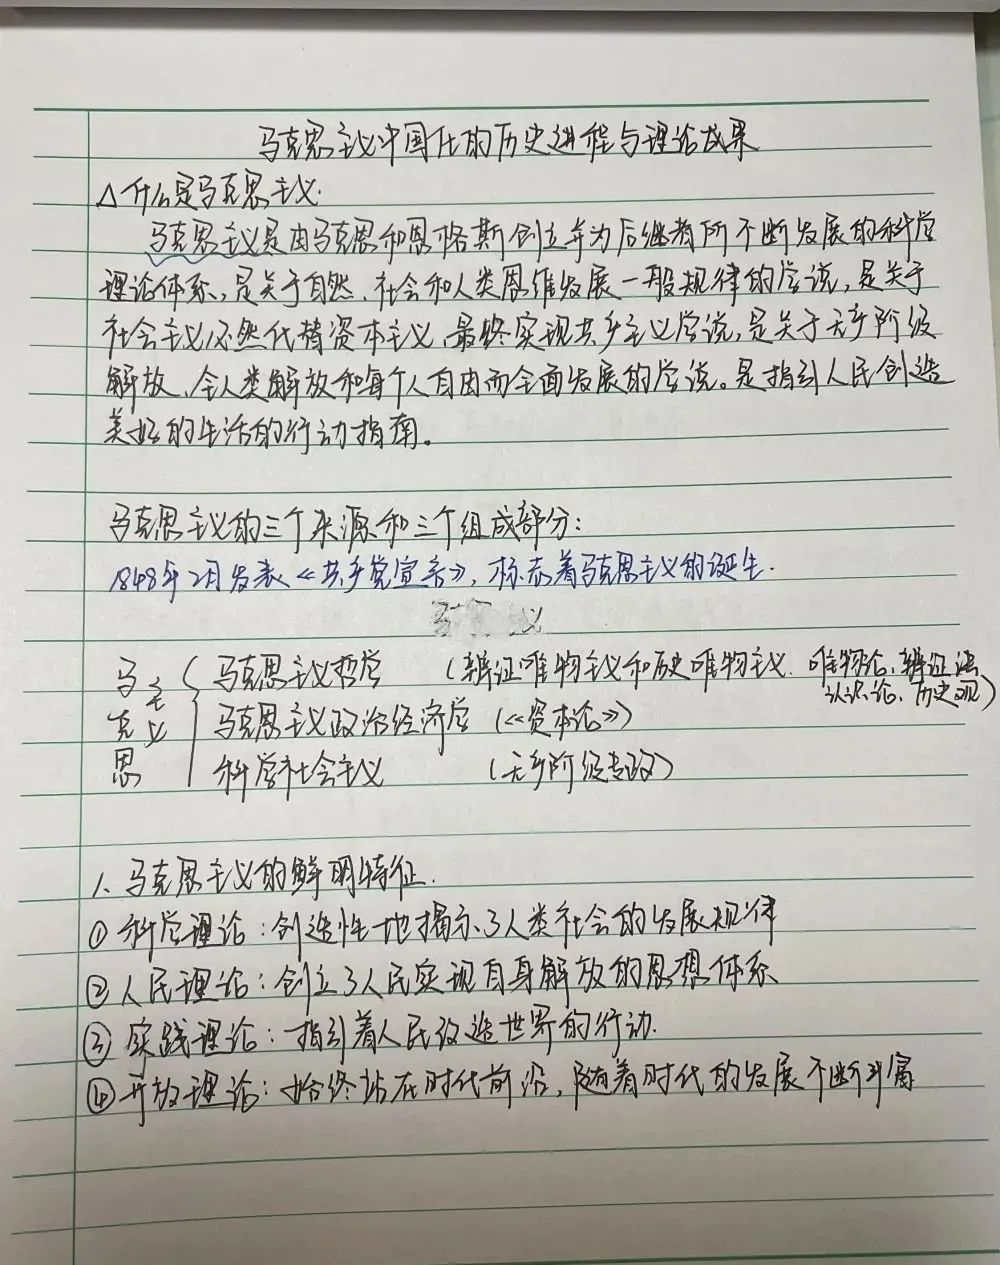 马克思主义中国化的历史进程与理论成果
△什么是马克思主义.
马克思主义是由马克思和恩格斯创立并为后继者所不断发展的科学
理论体系,是关于自然、社会和人类思维发展一般规律的学说,是关于
社会主义必然代替资本主义、最终实现共产主义学说,是关于无产阶级
解放、全人类解放和每个人自由而全面发展的学说。是指引人民创造
美好的生活的行动指南。
马克思主义的三个来源和三个组成部分:
1848年2月发表《共产党宣言》,标志着马克思主义的诞生.
马克思主义 马克思主义哲学 (辩证唯物主义和历史唯物主义. 唯物论、辩证法
认识论、历史观)
马克思主义政治经济学 (《资本论》)
科学社会主义 (无产阶级专政)
1、马克思主义的鲜明特征.
① 科学理论:创造性地揭示了人类社会的发展规律
② 人民理论:创立了人民实现自身解放的思想体系
③ 实践理论:指引着人民改造世界的行动.
④ 开放理论:始终站在时代前沿,随着时代的发展不断